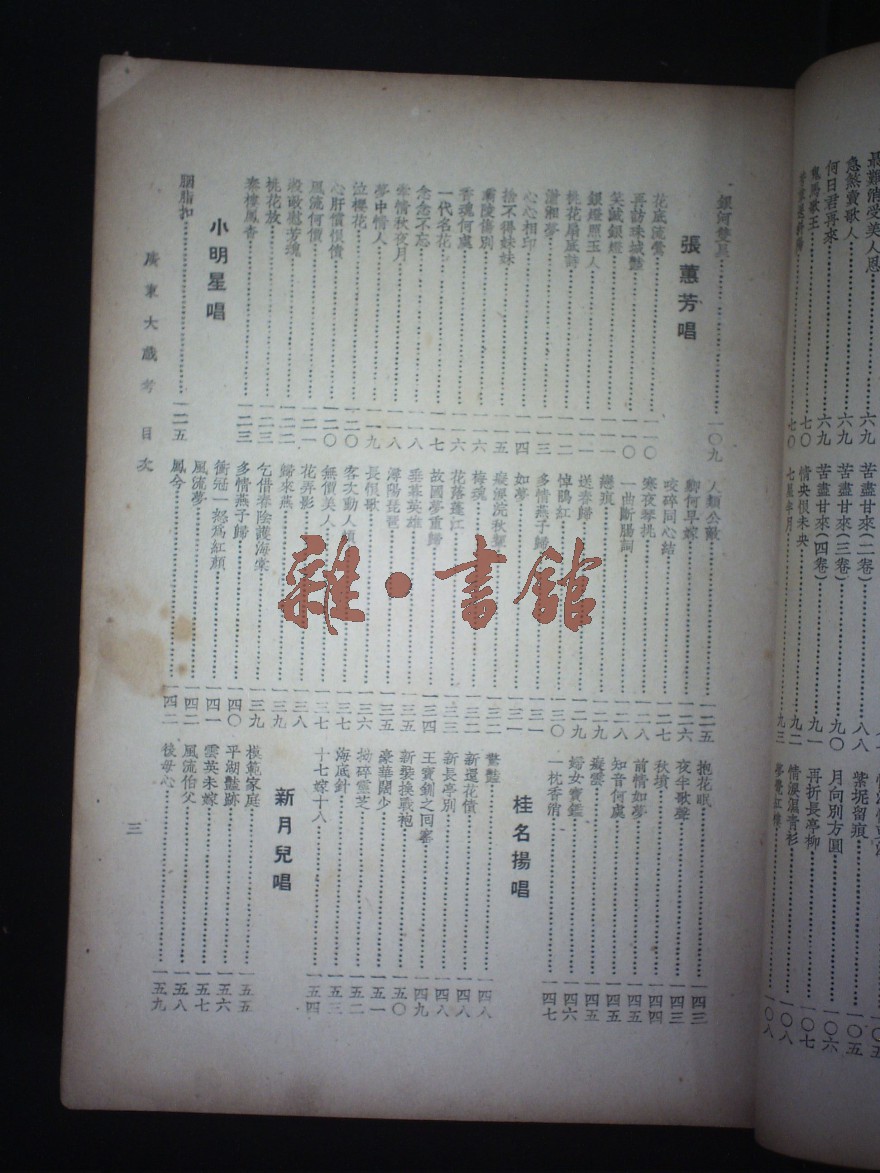 最難消受美人恩 六九
急煞賣歌人 六九
何日君再來 六九
鬼馬歌王 七〇
七〇
苦盡甘來(二卷) 八八
苦盡甘來(三卷) 九〇
苦盡甘來(四卷) 九一
情央恨未央 九二
七星伴月 九三
紫坭留痕 一〇五
月向別方圓 一〇六
再折長亭柳 一〇七
情淚濕青衫 一〇八
夢覺紅樓 一〇八
銀河雙星 一〇九
張蕙芳唱
花底流鶯 一一〇
再訪珠城豔 一一〇
笑誠銀燈 一一一
銀燈照玉人 一一一
桃花扇底詩 一一二
瀟湘夢 一一三
心心相印 一一四
捨不得妹妹 一一五
灞陵傷別 一一六
香魂何處 一一六
一代名花 一一七
念念不忘 一一八
牽情秋夜月 一一八
夢中情人 一一九
泣櫻花 一二〇
心肝憤恨債 一二〇
風流何價 一二一
殺敵慰芳魂 一二二
桃花放 一二三
秦樓鳳杳 一二三
小明星唱
胭脂扣 一二五
人類公敵 一二五
卿何早嫁 一二六
咬碎同心結 一二七
寒夜琴挑 一二八
一曲斷腸詞 一二八
戀痕 一二九
送春歸 一二九
悼鵑紅 一三〇
多情燕子歸 一三一
如夢 一三一
癡淚浣秋墳 一三二
梅魂 一三二
花落蓬江 一三三
故國夢重歸 一三四
垂暮英雄 一三五
潯陽琵琶 一三五
長恨歌 一三六
客次動人 一三七
無價美人 一三七
花弄影 一三八
歸來燕 一三九
乞借春陰護海棠 一三九
多情燕子歸 一四〇
衝冠一怒為紅顏 一四一
風流夢 一四二
鳳今 一四二
抱花眠 一四三
夜半歌聲 一四三
秋墳 一四四
前情如夢 一四四
知音何處 一四五
癡雲 一四五
婦女寶鑑 一四六
一枕香消 一四七
桂名揚唱
驚豔 一四八
新還花債 一四八
新長亭別 一四八
王寶釧之回窰 一四九
新裝換戰袍 一五〇
豪華闊少 一五一
拗碎靈芝 一五二
海底針 一五三
十七嫁十八 一五四
新月兒唱
模範家庭 一五五
平湖豔跡 一五六
雲英未嫁 一五七
風流伯父 一五八
後母心 一五九
廣東大戲考 目次
三
雜·書館